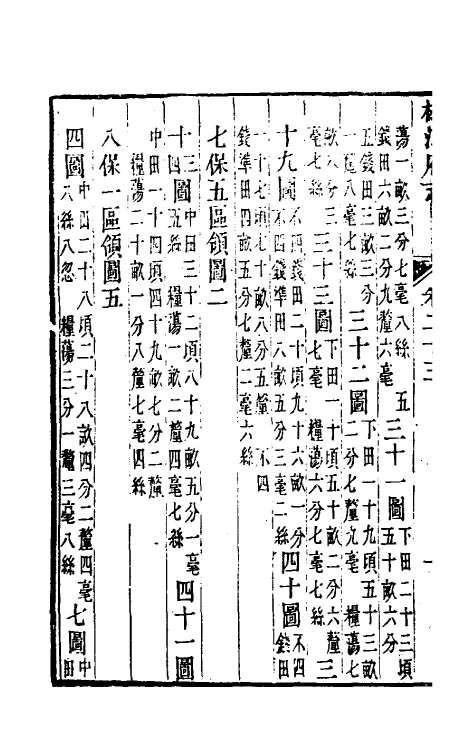 蕩一畝三分七毫八絲　五
錢田六畝二分九釐六毫
三十一圖
下田二十三頃
五十畝六分
五錢田三畝三分
一釐八毫七絲
三十二圖
下田一十九頃五十三畝
二分七釐九毫　糧蕩七
畝六分三
毫七絲
三十三圖
下田一十頃五十二畝六釐
七毫　糧蕩六分七毫七絲
三
十九圖
不四錢田二十頃九十六畝一分
不四錢準田八畝五分三毫二絲
四十圖
不四
錢田
一十七頃七十畝八分五釐　不四
錢準田四畝五分七釐二毫六絲
七保五區領圖二
十三圖
中田三十二頃八十九畝五分一毫
四絲　糧蕩一畝二釐四毫七絲
四十一圖
中田一十四頃四十九畝七分二釐
糧蕩二十畝一分八釐七毫四絲
八保一區領圖五
四圖
中田二十八頃二十八畝四分二釐四毫
八絲八忽　糧蕩三分一釐三毫八絲
七圖
中
田